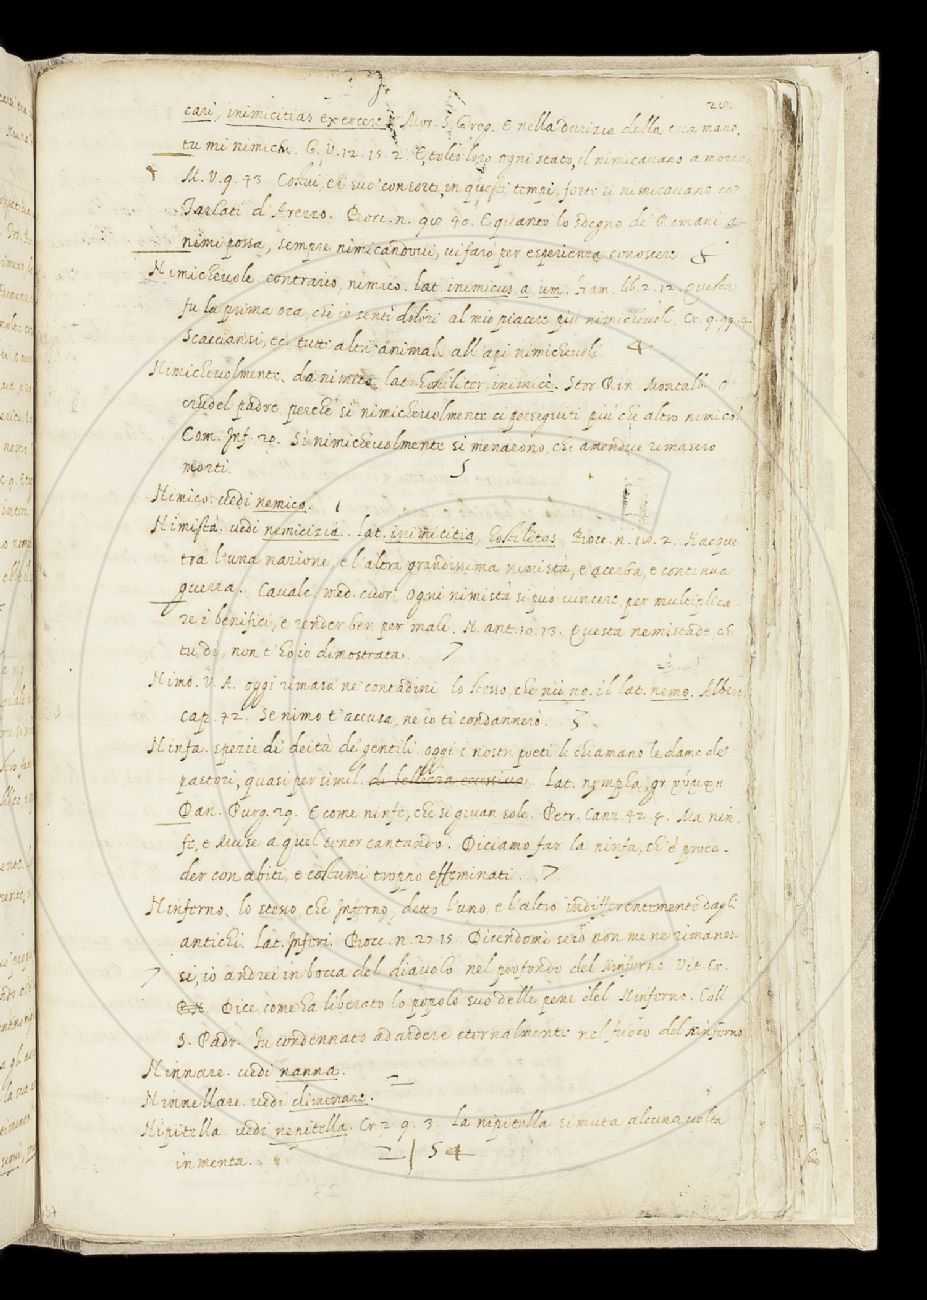 cari, inimicitias exercere. Mor. S. Greg. E nella durizia della tua mano,
tu mi nimichi. G. V. 12. 15. 2. E tolto loro ogni stato, il nimicavano a morte
M. V. 9. 43 Costui, e i suoi consorti, in questi tempi, forte si nimicavano co'
Tarlati d'Arezzo. Bocc. n. 98. 40. E quanto lo sdegno de' Romani a-
nimi possa, sempre nimicandovi, vi farò per esperienza conoscere. 4
Nimichevole. contrario, nimico. lat. inimicus, a, um. Fiam. lib. 2. 12. Questa
fu la prima ora, che io senti dolori al mio piacere più nimichevoli. Cr. 9. 99. 2
Scacciansi, ec. tutti altri animali all'api nimichevoli. 4
Nimichevolmente. da nimico. lat. hostiliter, inimicè. Stor. Rin. Montalb. O
crudel padre, perchè sì nimichevolmente ci perseguiti più che altro nimico?
Com. Inf. 29. Sì nimichevolmente si menarono, che amendue rimasero
morti. 5
Nimico. vedi nemico. 1
Nimistà. vedi nemicizia. lat. inimicitia, hostilitas. Bocc. n. 18. 2. Nacque
tra l'una nazione, e l'altra grandissima nimistà, e acerba, e continua
guerra. Cavalc. med. cuor. Ogni nimistà si può vincere, per multiplica-
re i benifici, e render ben per male. N. ant. 10. 13. Questa nemistade che
tu di, non t'ho io dimostrata. 7
Nimo. V. A. oggi rimasa ne' contadini. lo stesso, che niuno. il lat. nemo. Albert.
cap. 42. Se nimo t'accusa, ne io ti condannerò. 3
Ninfa. spezie di deità de' gentili. oggi i nostri poeti le chiamano le dame de'
pastori, quasi per simil. di bellezza eccessiva. Lat. nympha, gr. νύμφη
Dan. Purg. 29. E come ninfe, che si givan sole. Petr. Canz. 42. 4. Ma nin-
fe, e Muse a quel tenor cantando. Diciamo far la ninfa, ch'è proce-
der con abiti, e costumi troppo effeminati. 7
Ninferno. lo stesso, che Inferno, detto l'uno, e l'altro indifferentemente dagli
antichi. Lat. Inferi. Bocc. n. 27. 15. Dicendomi se io non me ne rimanes-
7 si, io andrei in bocca del diavolo nel profondo del Ninferno. Vit. Cr.
Dice, come ha liberato lo popolo suo delle pene del Ninferno. Coll.
S. Padr. Fu condennato ad ardere eternalmente nel fuoco del Ninferno
Ninnare. vedi nanna.
Ninnellare. vedi dimenare.
Nipitella. vedi nepitella. Cr. 2. 9. 3. La nipitella si muta alcuna volta
in menta. 2 | 54